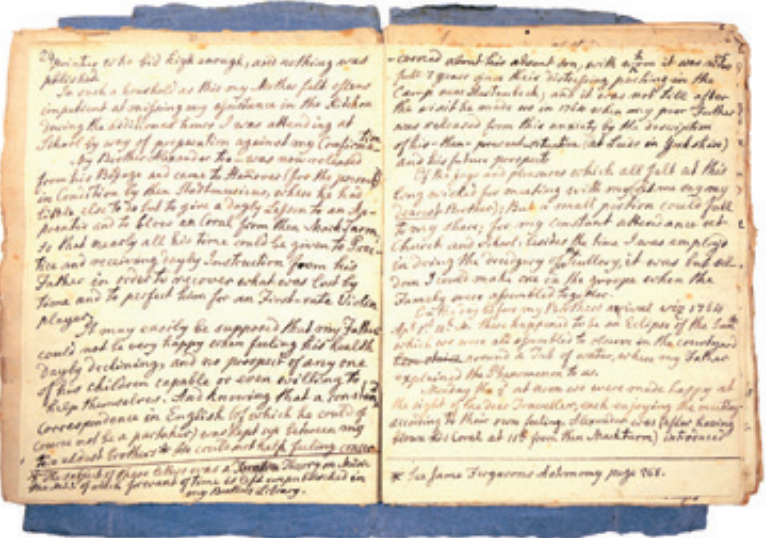 printer who bid high enough, and nothing was
published.
In such a houshold as this my Mother felt often
impatient at missing my assistance in the Kitchen
during the additional hours I was attending at
School by way of preparation against my Confirmation
My Brother Alexander too was now released
from his and came to Hanover (for the present)
in Condition by then Stadtmusicus, where he had
little else to do but to give a dayly Lesson to an Ap-
prentice and to blow an Coral from then Markthurm
so that nearly all his time could be given to Prac-
tice and receiving dayly Instruction from his
Father in order to recover what was lost by
time and to perfect him for an First-rate Violin
player.
It may easily be supposed that my Father
could not be very happy when feeling his health
dayly declining, and no prospect of any one
of his children capable or even willing to
help themselves. And knowing that a constant
Correspondence in English (of which he could of
course not be a partaker) was kept up between my
two eldest Brothers * he could not help feeling concer
* The subject of these letters was a Theory on Music
of which for want of time is left unpublished in
my Brothers Library.
-cerned about his absent son, with whom it was
full 7 years since their distressing parting in the
Camp near Hastenbeck; and it was not till after
the visit he made us in 1764 when my poor Father
was released from this anxiety by the description
of his then present situation (at Leeds in Yorkshire)
and his future prospects
Of the joys and pleasures which all felt at this
long wished for meeting with my let me say my
dearest Brother); But a small portion could fall
to my share; for my constant attendance at
Church and School, besides the time I was employd
in doing the drudgery of Scullery, it was but sel-
dom I could make one in the groupe when the
Famely were assembled together.
On the day before my Brothers arival viz 1764
Apl 1st there happened to be an Eclipse of the Sun *
which we were all assembled to observe in the courtyard
around a Tub of water, where my Father
explained the Phenomenon to us.
Monday the 2d at noon we were made happy at
the sight of the dear Traveller, each enjoying the meeting
according to their own feeling. Alexander was (after having
blown his Coral at 11th from then Markthurm)
* See James Fergusons Astronomy page 268.